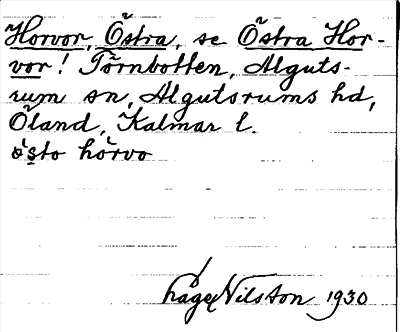 Horvor, Östra, se Östra Hor-
vor! Törnbotten, Alguts-
rum sn, Algutsrums hd,
Öland, Kalmar l.
östo hörvo
Nilsson 1930